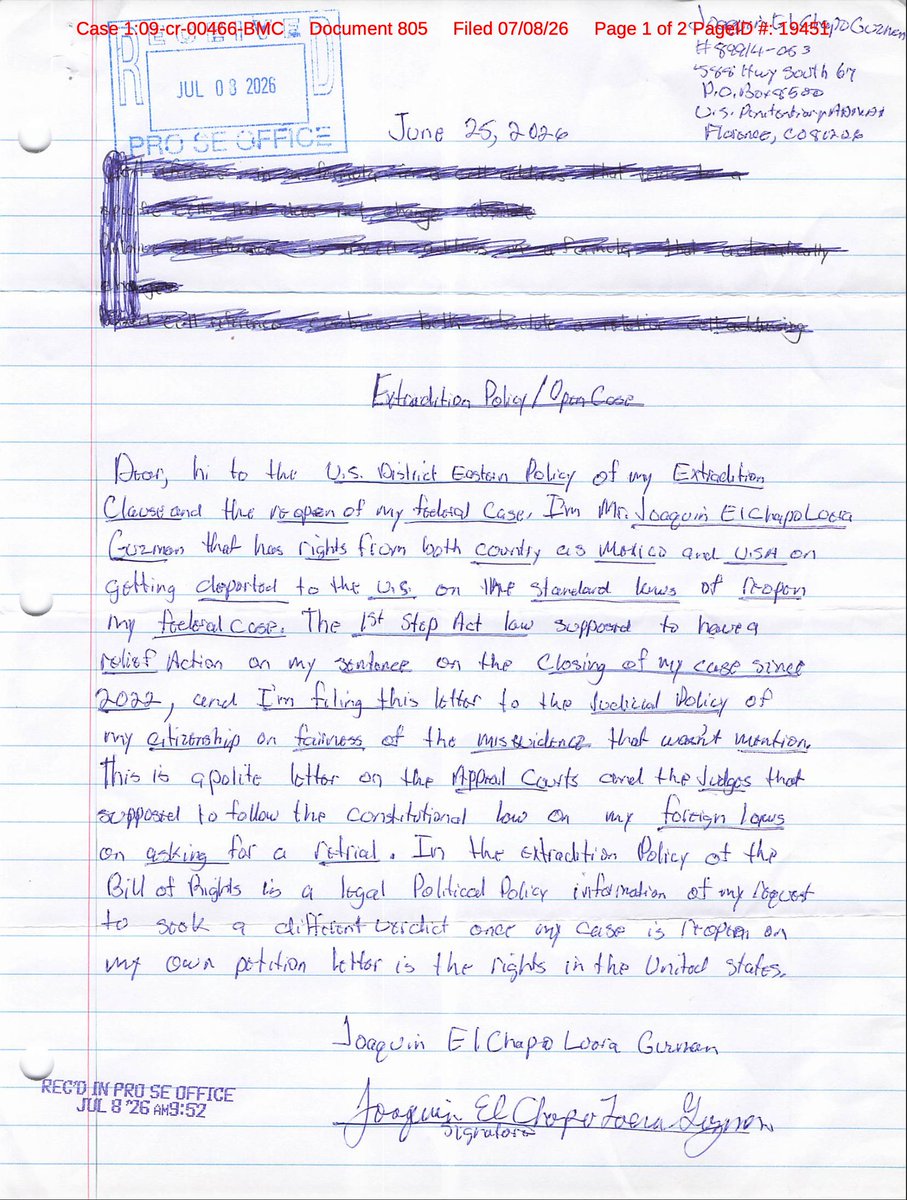 Case 1:09-cr-00466-BMC Document 805 Filed 07/08/26 Page 1 of 2 PageID #: 19451
RECEIVED
JUL 08 2026
PRO SE OFFICE
Joaquin El Chapo Guzman
# 89914-053
5880 Hwy South 67
P.O. Box 8500
U.S. Penitentiary
Florence, CO 81226
June 25, 2026
Extradition Policy/Open Case
Dear, hi to the U.S. District Eastern Policy of my Extradition
Clause and the reopen of my federal case. I'm Mr. Joaquin El Chapo Loera
Guzman that has rights from both country as Mexico and USA on
getting deported to the U.S. on the standard laws of reopen
my federal case. The 1st Step Act law supposed to have a
relief Action on my sentence on the Closing of my case since
2022, and I'm filing this letter to the Judicial Policy of
my citizership on fairness of the misevidence that wasn't mention.
This is a polite letter on the Appeal Courts and the Judges that
supposed to follow the constitutional law on my foreign laws
on asking for a retrial. In the extradition Policy of the
Bill of Rights is a legal Political Policy information of my request
to seek a different verdict once my case is reopen on
my own petition letter is the rights in the United States.
Joaquin El Chapo Loera Guzman
Joaquin El Chapo Loera Guzman
Signature
REC'D IN PRO SE OFFICE
JUL 8 '26 AM9:52